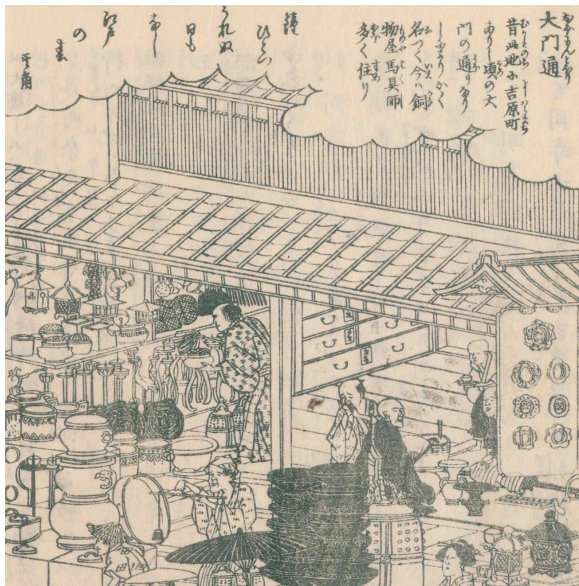 大門通
昔此地に吉原町
ありし頃の大
門の通りなり
しによりかく
名づく今ハ銅
物屋馬具師
多く住り
鐘
ひとつ
うれぬ
日も
なし
江戸
の
春
其角